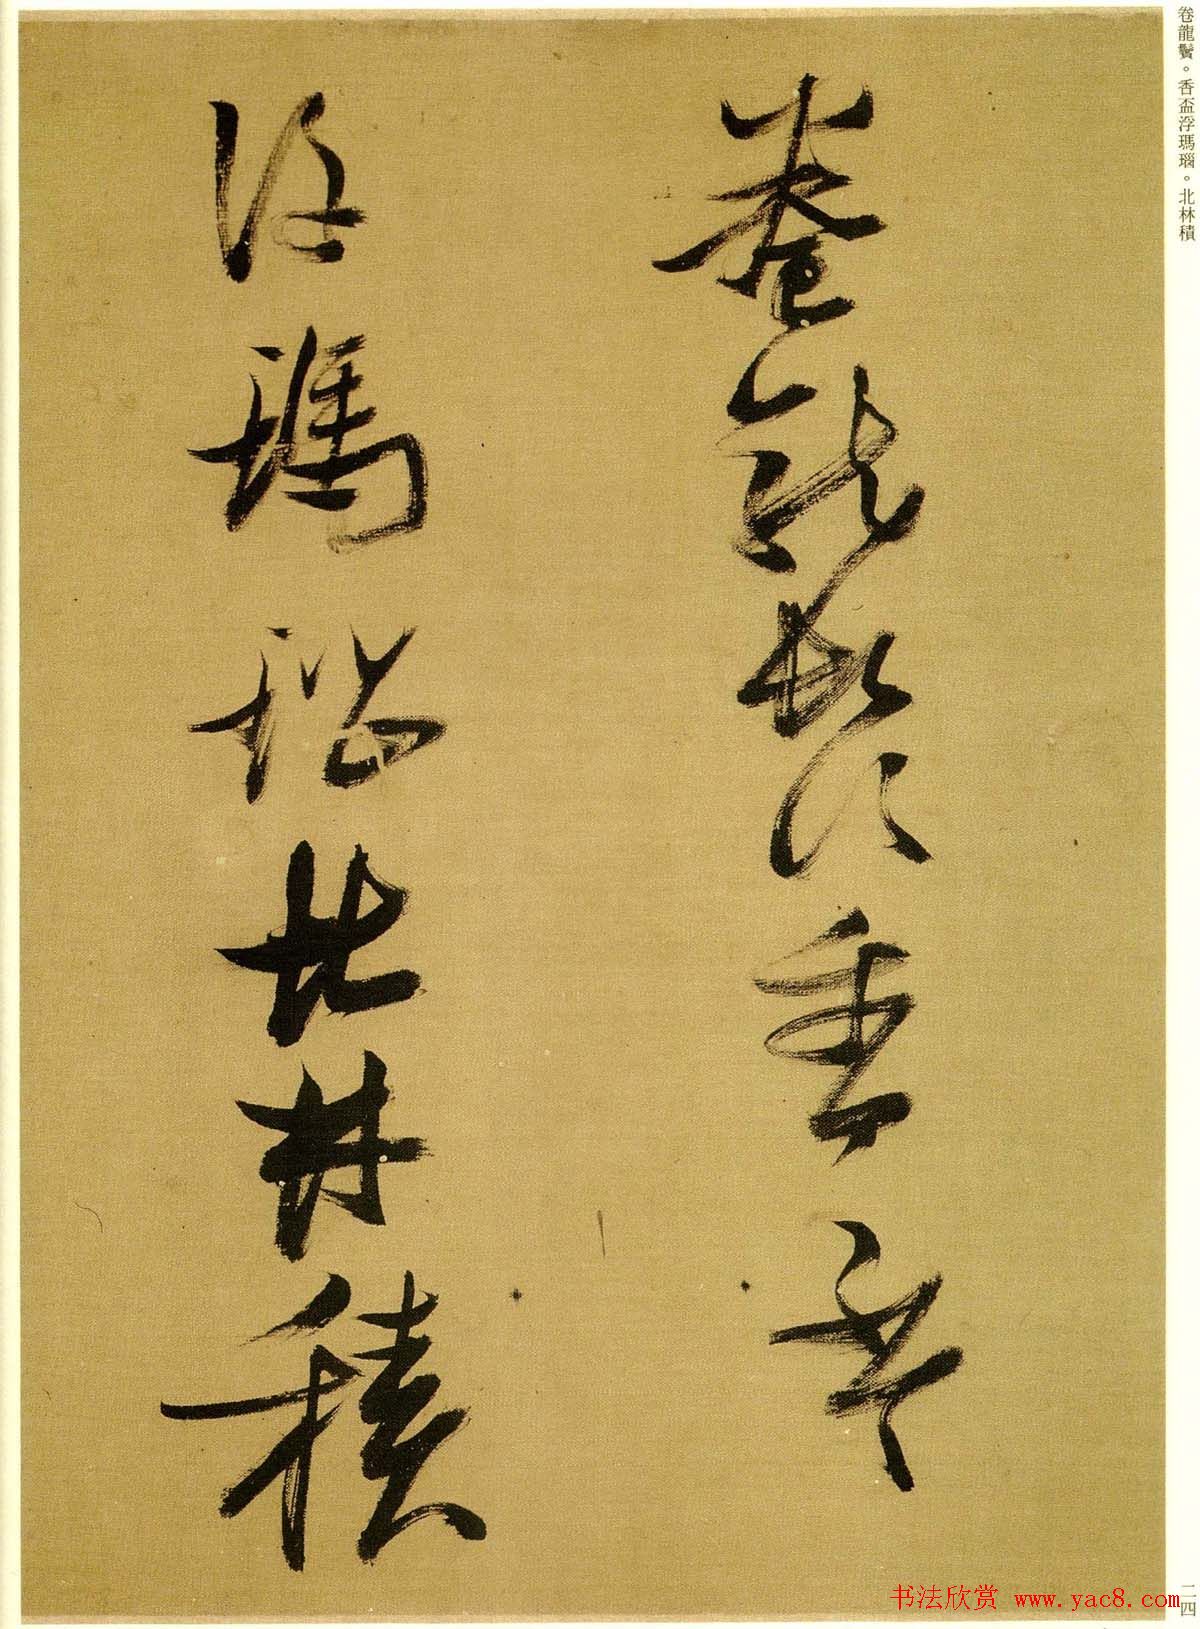 卷龍鬢。香盃浮瑪瑙。北林積
卷龍鬚香盃
浮瑪瑙北林積
二四
书法欣赏 www.yac8.com